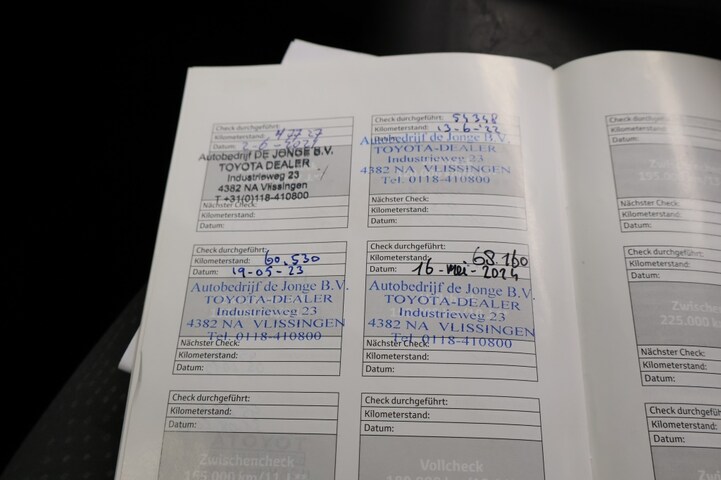 Check durchgeführt:
Kilometerstand: 47727
Datum: 2-6-2021
Autobedrijf DE JONGE B.V.
TOYOTA-DEALER
Industrieweg 23
4382 NA Vlissingen
T +31(0)118-410800
Nächster Check:
Kilometerstand:
Datum:
Check durchgeführt: 54348
Kilometerstand: 13-6-22
Autobedrijf de Jonge B.V.
TOYOTA-DEALER
Industrieweg 23
4382 NA VLISSINGEN
Tel. 0118-410800
Nächster Check:
Kilometerstand:
Datum:
Check durchgeführt:
Kilometerstand:
Datum:
Nächster Check:
Kilometerstand:
Datum:
Check durchgeführt:
Kilometerstand: 60.530
Datum: 19-05-23
Autobedrijf de Jonge B.V.
TOYOTA-DEALER
Industrieweg 23
4382 NA VLISSINGEN
Tel. 0118-410800
Nächster Check:
Kilometerstand:
Datum:
Check durchgeführt:
Kilometerstand: 68.160
Datum: 16-mei-2024
Autobedrijf de Jonge B.V.
TOYOTA-DEALER
Industrieweg 23
4382 NA VLISSINGEN
Tel. 0118-410800
Nächster Check:
Kilometerstand:
Datum:
Check durchgeführt:
Kilometerstand:
Datum:
225.000
Nächster Check:
Kilometerstand:
Datum:
Check durchgeführt:
Kilometerstand:
Datum:
Zwischencheck
Check durchgeführt:
Kilometerstand:
Datum:
Vollcheck
Check durchgefüh
Kilometerstand:
Datum: